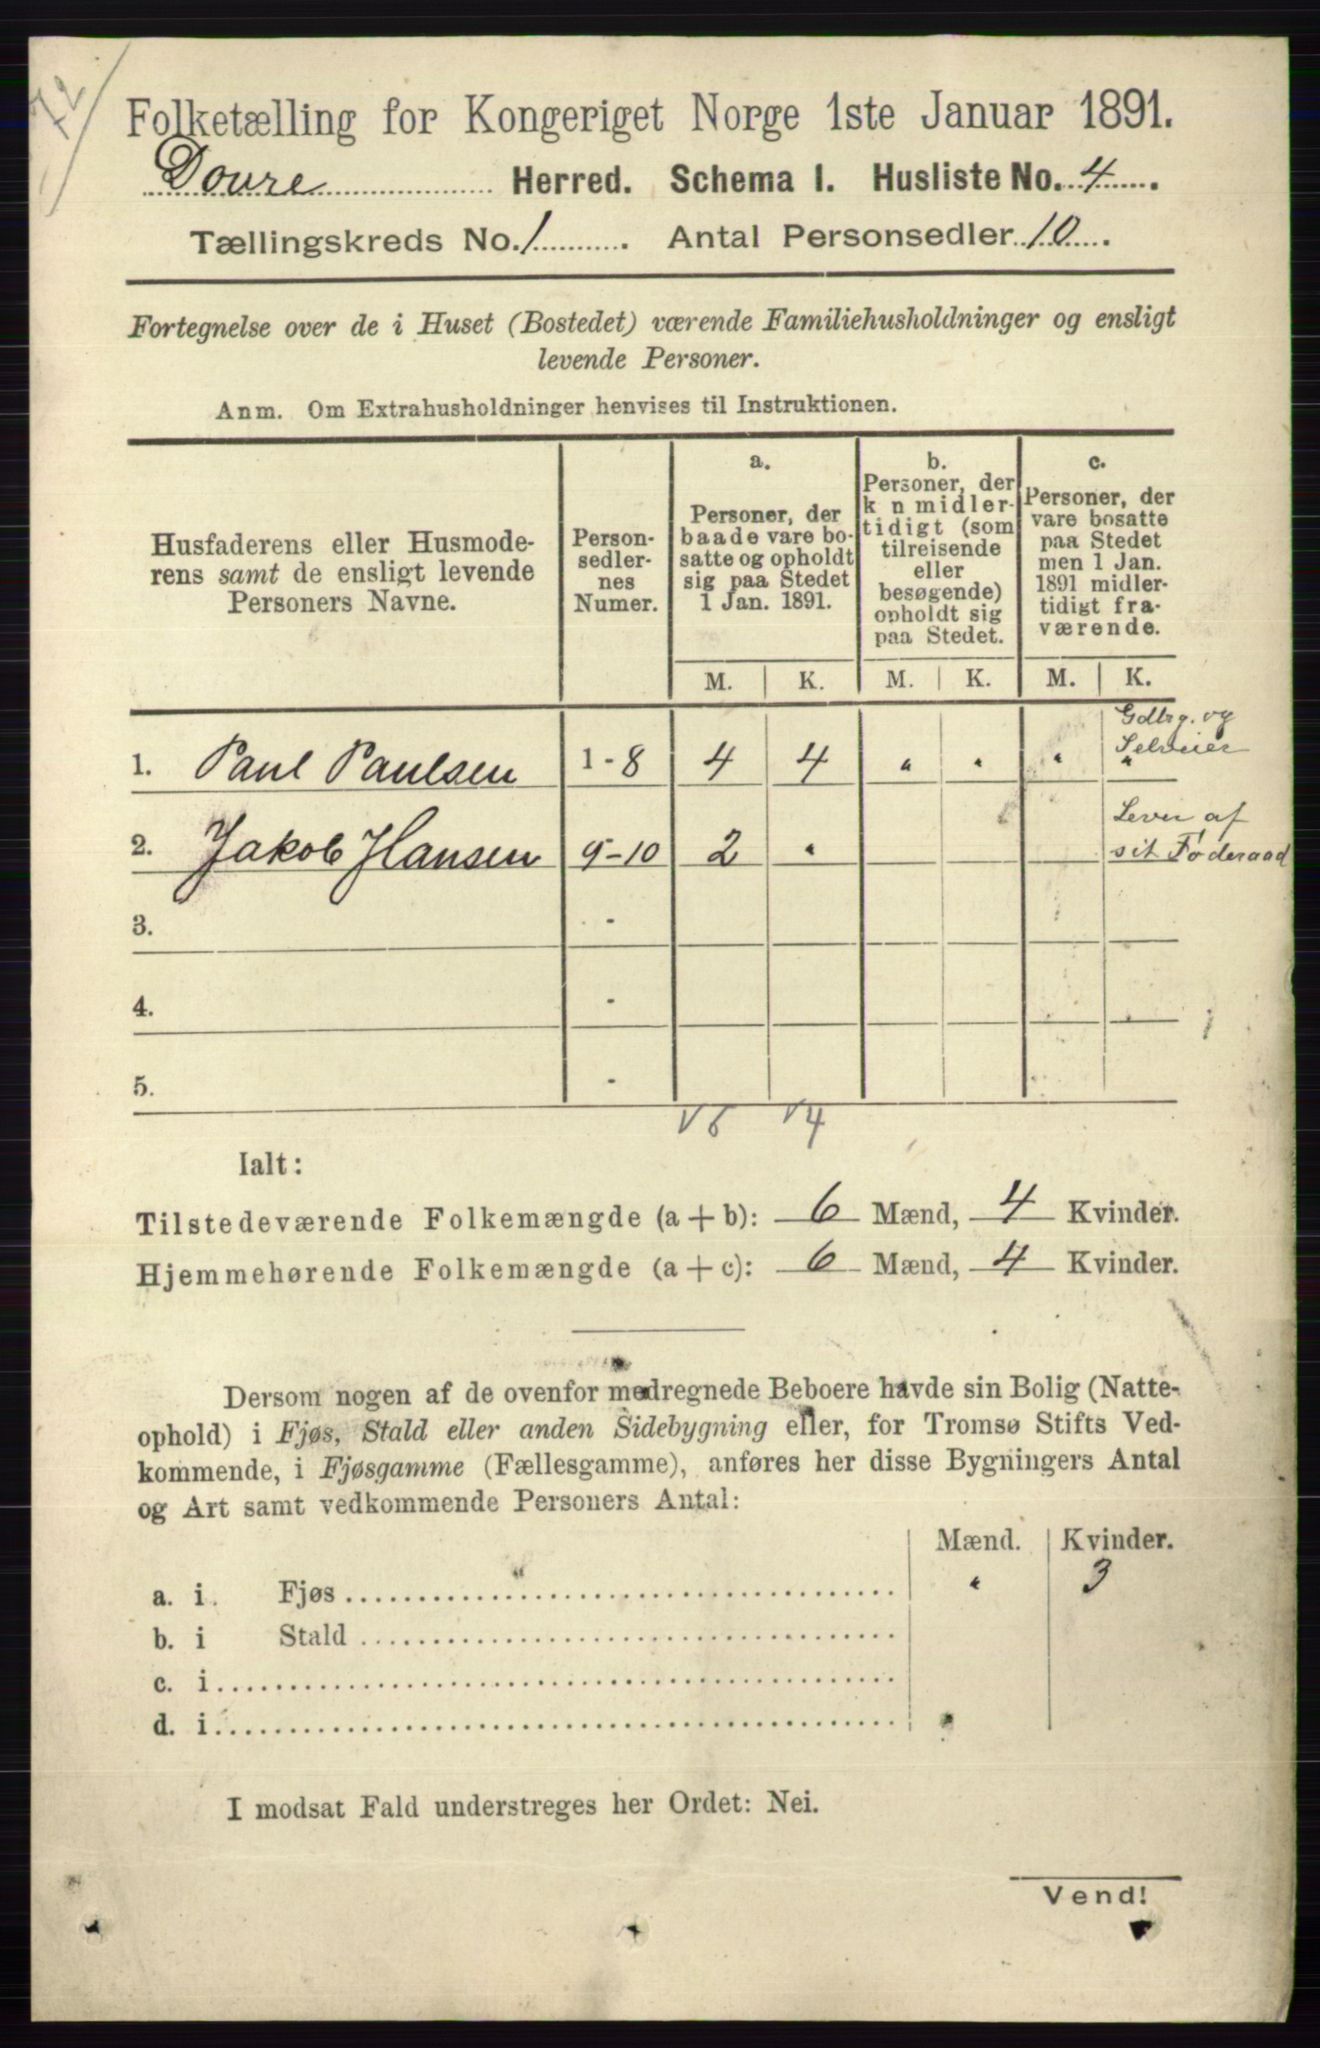 72
Folketælling for Kongeriget Norge 1ste Januar 1891.
Dovre Herred. Schema I. Husliste No. 4.
Tællingskreds No. 1. Antal Personsedler 10.
Fortegnelse over de i Huset (Bostedet) værende Familiehusholdninger og ensligt
levende Personer.
Anm. Om Extrahusholdninger henvises til Instruktionen.
Husfaderens eller Husmode-
rens samt de ensligt levende
Personers Navne.
Person-
sedler-
nes
Numer.
a.
Personer, der
baade vare bo-
satte og opholdt
sig paa Stedet
1 Jan. 1891.
b.
Personer, der
k n midler-
tidigt (som
tilreisende
eller
besøgende)
opholdt sig
paa Stedet.
c.
Personer, der
vare bosatte
paa Stedet
men 1 Jan.
1891 midler-
tidigt fra-
værende.
M. K. M. K. M. K.
Gdbrg. og
Selveier
1. Paul Paulsen 1-8 4 4 " " " "
Lever af
2. Jakob Hansen 9-10 2 " sit Føderaad
3. -
4. -
5. -
v6 v4
Ialt:
Tilstedeværende Folkemængde (a+b): 6 Mænd, 4 Kvinder.
Hjemmehørende Folkemængde (a+c): 6 Mænd, 4 Kvinder.
Dersom nogen af de ovenfor medregnede Beboere havde sin Bolig (Natte-
ophold) i Fjøs, Stald eller anden Sidebygning eller, for Tromsø Stifts Ved-
kommende, i Fjøsgamme (Fællesgamme), anføres her disse Bygningers Antal
og Art samt vedkommende Personers Antal:
Mænd. Kvinder.
a. i Fjøs " 3
b. i Stald
c. i
d. i
I modsat Fald understreges her Ordet: Nei.
Vend!